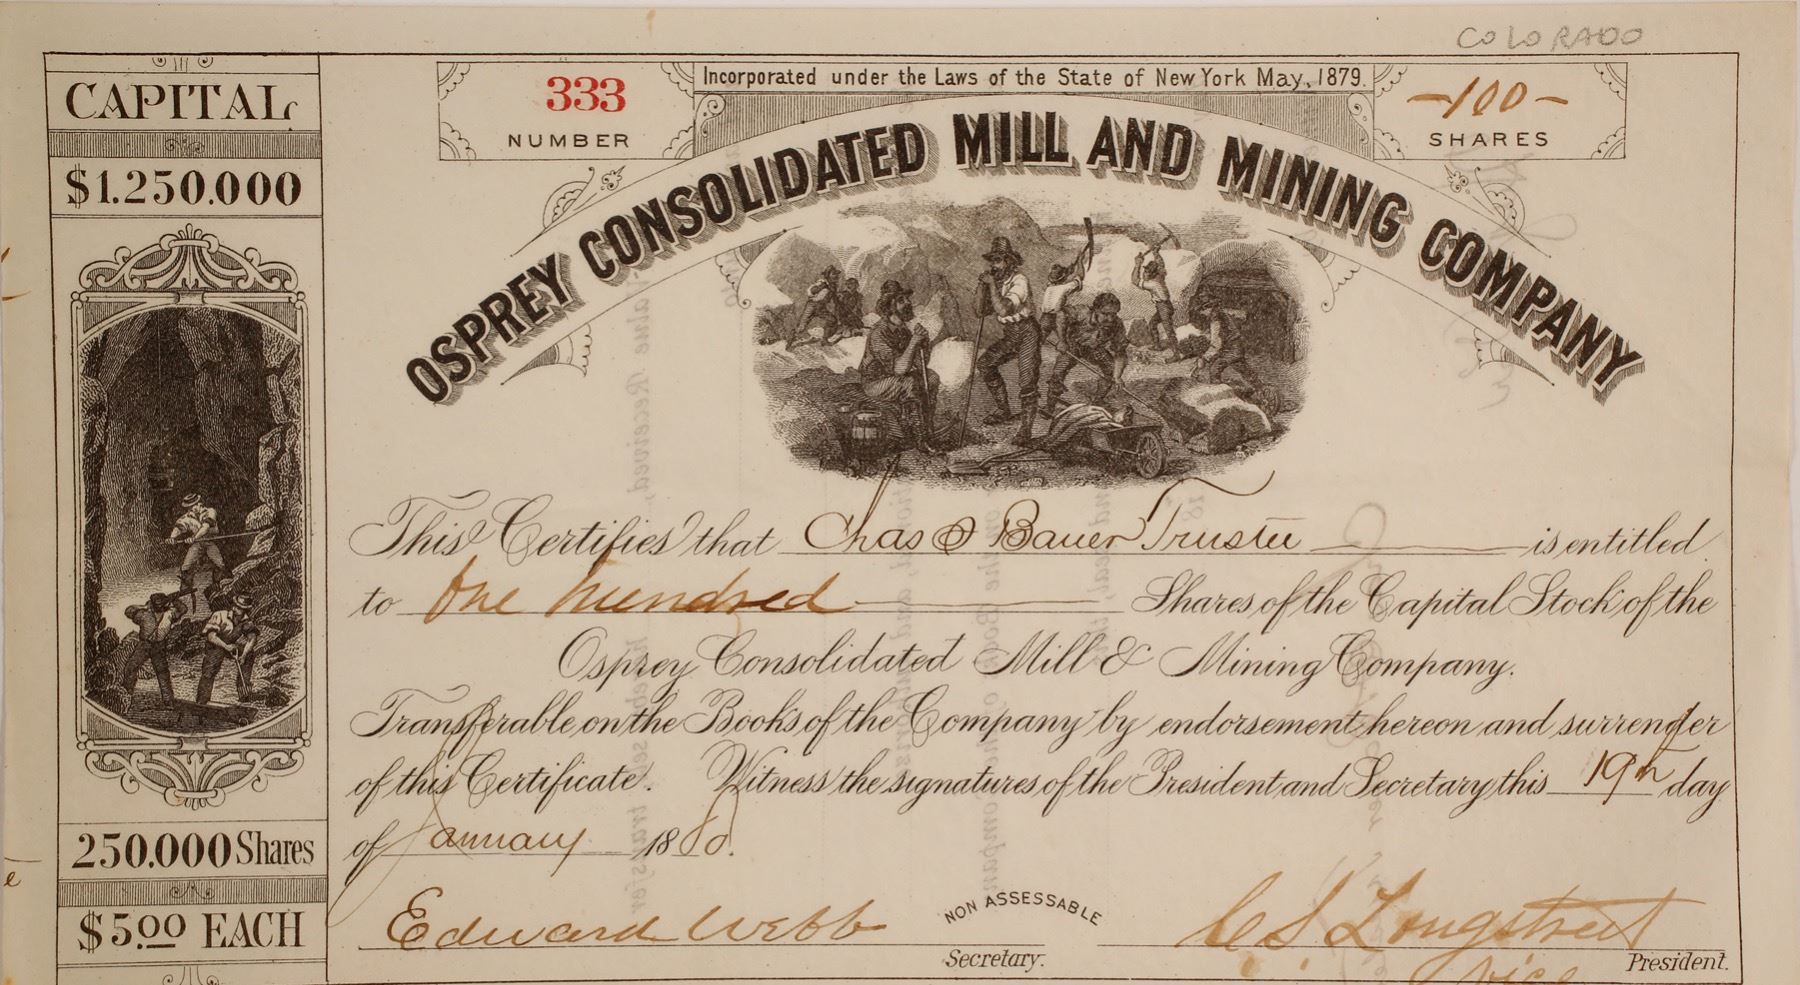 COLORADO
CAPITAL
$1.250.000
250.000 Shares
$5.00 EACH
333
NUMBER
Incorporated under the Laws of the State of New York May, 1879.
-100-
SHARES
OSPREY CONSOLIDATED MILL AND MINING COMPANY
This Certifies that Chas Bauer Trustee is entitled
to One hundred Shares of the Capital Stock of the
Osprey Consolidated Mill & Mining Company.
Transferable on the Books of the Company by endorsement hereon and surrender
of this Certificate. Witness the signatures of the President and Secretary this 19th day
of January 1880.
Edward Webb
NON ASSESSABLE
C S Longstreet
Secretary.
Vice President.